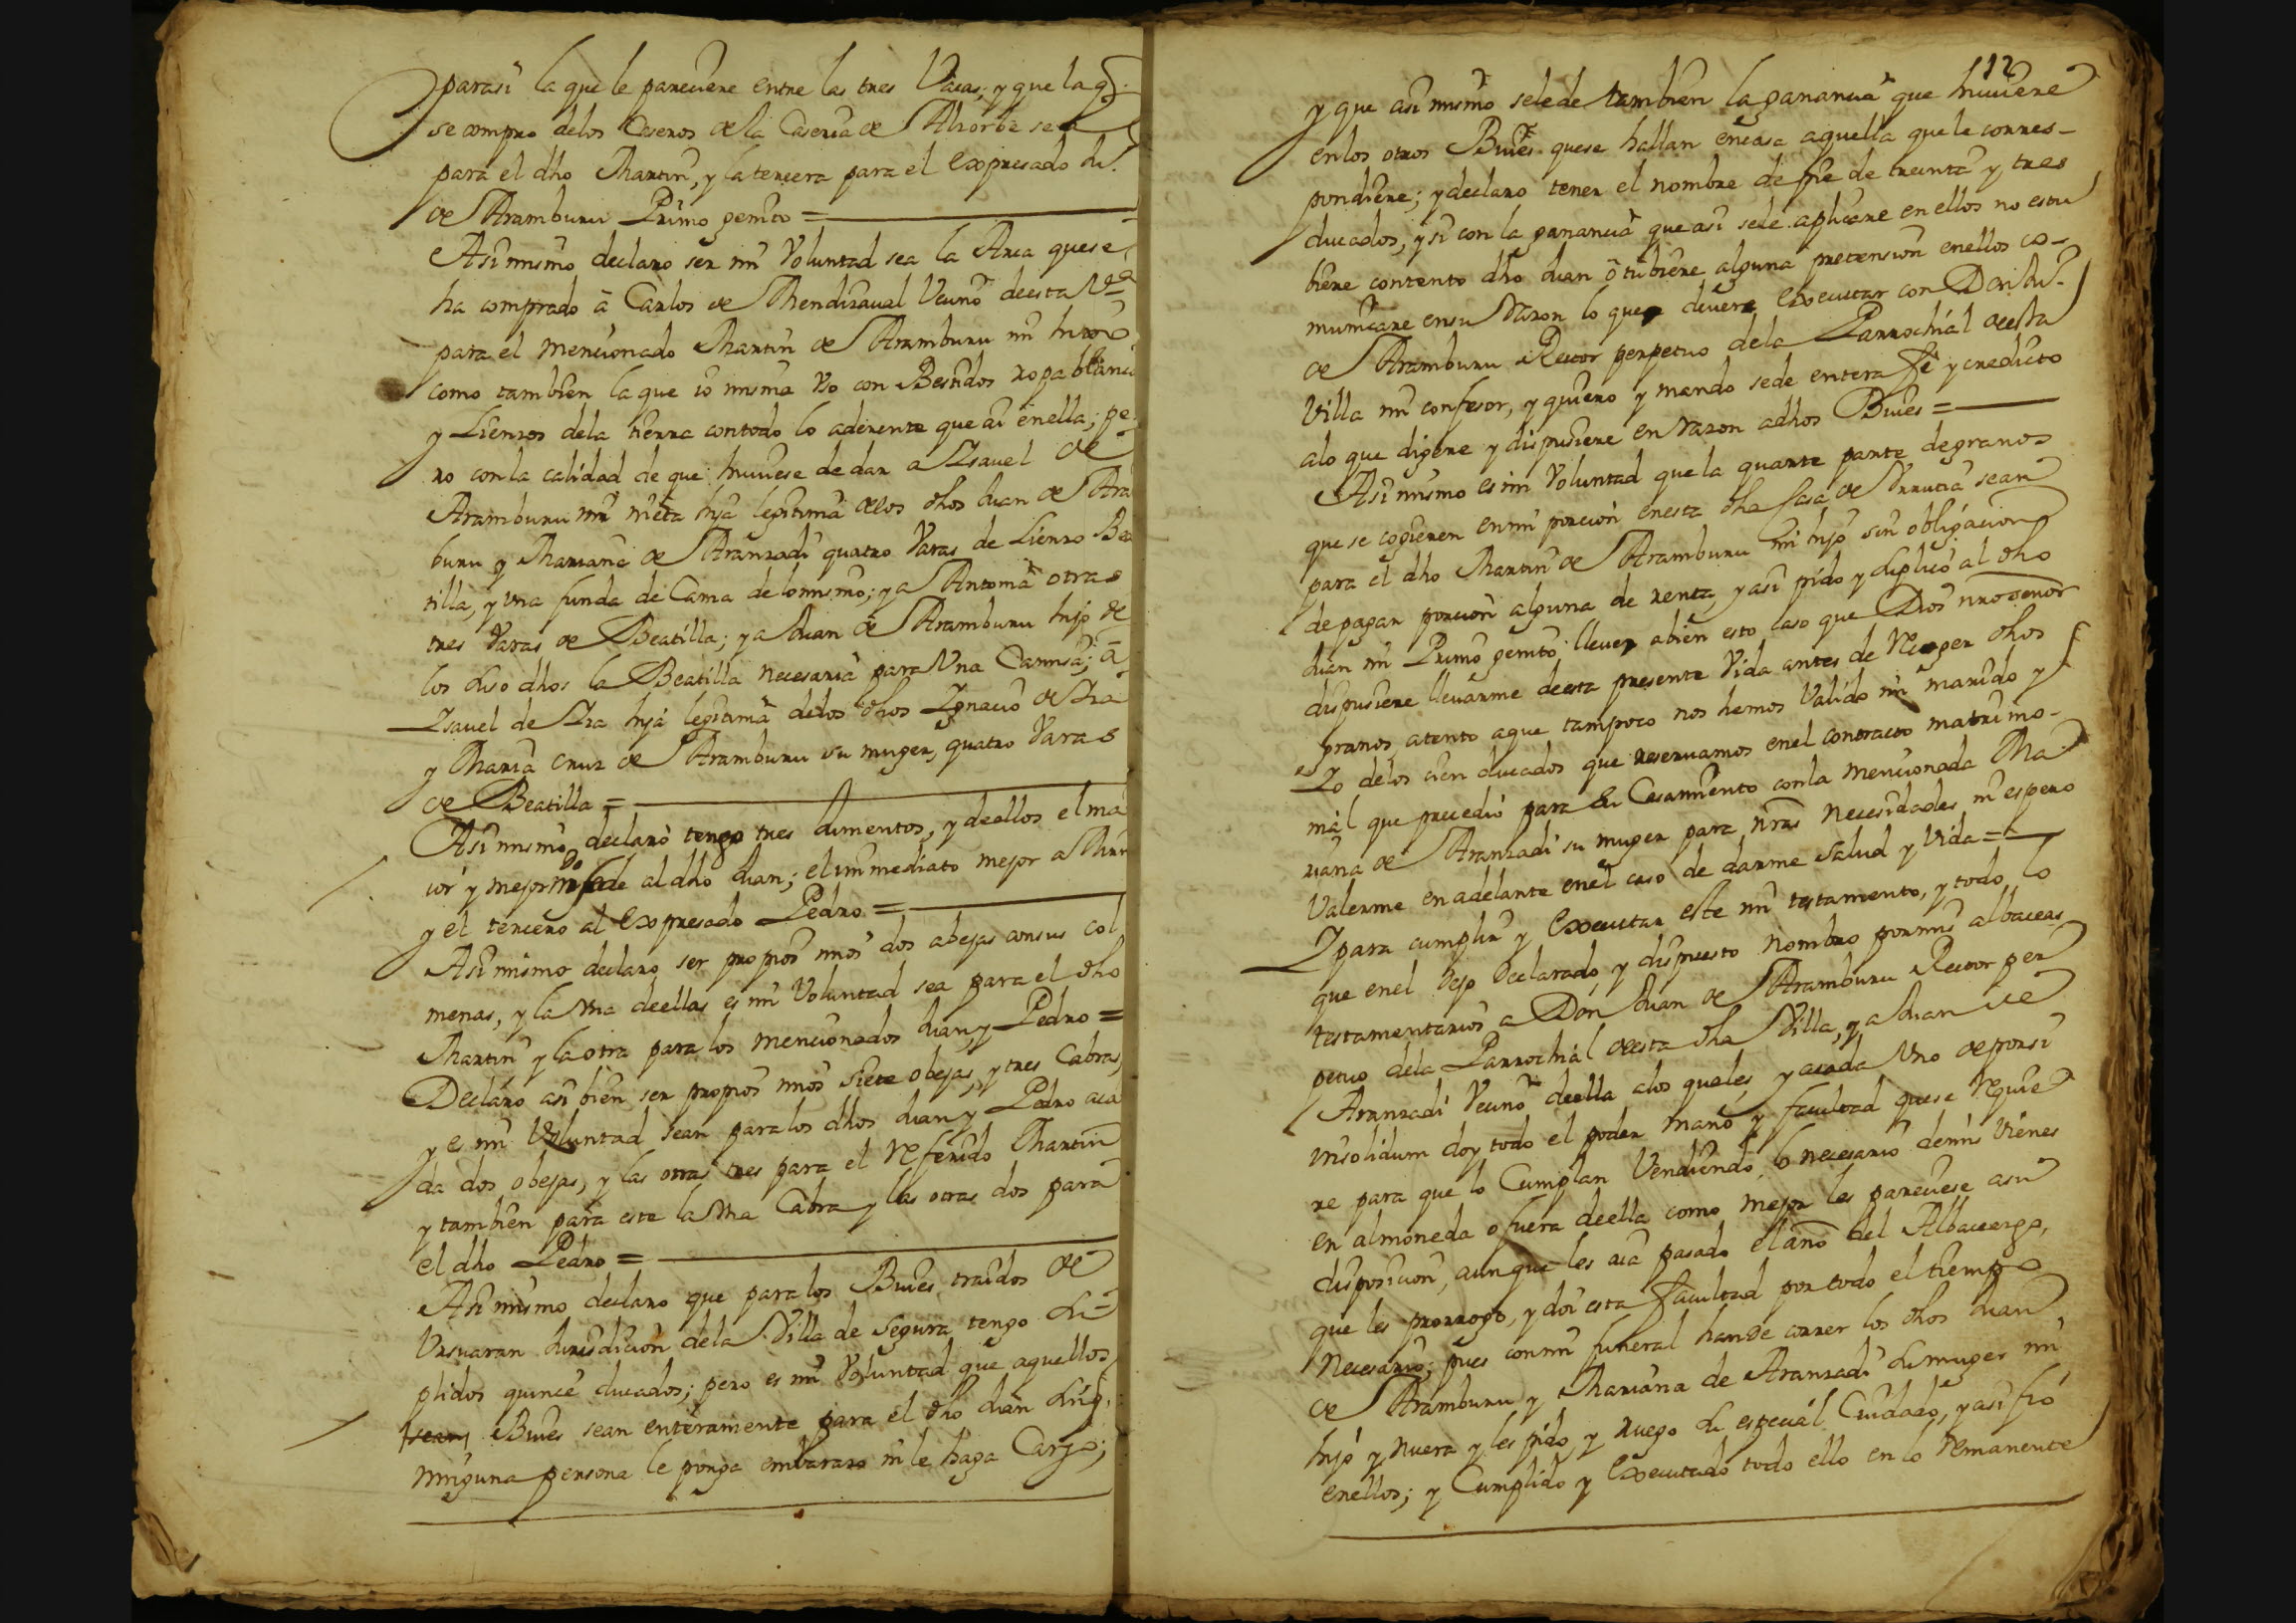 parasi la que le pareciere entre las tres Vacas; y que la q̃.
se compro delos Caseros de la Caseria de Alzorbe sea
para el dho Martin, y la tercera para el expresado Ju.º
de Aramburu Primo genito =
Asi mismo declaro ser mi Voluntad sea la Arca quese
ha comprado â Carlos de Mendizaual Vecino deesta Vª
para el mencionado Martin de Aramburu mi hixo
como tambien la que io misma Vso con Bestidos ropa blanca
y Lienzos dela tierra contodo lo aderente que ai enella; pe-
ro con la calidad de que huuiese de dar a Isauel de
Aramburu mi nieta hija legitima delos dhos Juan de Aram
buru y Mariana de Aranzadi quatro Varas de Lienzo Bea
tilla, y vna funda de Cama delomismo; y a Antonia otras
tres Varas de Beatilla; y a Juan de Aramburu hijo de
los suso dhos la Beatilla necesaria para Vna Camisa; â
Isauel de Iza hija legitima delos dhos Ignacio de Iza
y Maria Cruz de Aramburu su muger, quatro Varas
de Beatilla =
Asi mismo declaro tengo tres Jumentos, y deellos el ma
ior y mejor mdo sede al dho Juan; el immediato mejor a Mrn
y el tercero al expresado Pedro =
Asi mismo declaro ser propios mios dos abejas consus col
menas, y la vna deellas es mi Voluntad sea para el dho
Martin y la otra para los mencionados Juan, y Pedro =
Declaro asi bien ser propios mios siete obejas, y tres Cabras,
y es mi Voluntad sean para los dhos Juan y Pedro aca
da dos obejas, y las otras tres para el referido Martin
y tambien para este la vna Cabra y las otras dos para
el dho Pedro =
Asi mismo declaro que para los Bueis traidos de
Vrsuaran Jurisdicion dela Villa de Segura tengo su-
plidos quince ducados; pero es mi Voluntad que aquellos
Bueis sean enteramente para el dho Juan sin q̃.
ninguna persona le ponga embarazo ni le haga Cargo;
112
y que asi mismo selede tambien la ganancia que huuiere
enlos otros Bueis quese hallan encasa aquella que le corres-
pondiere; y declaro tener el nombre de pie de treinta y tres
ducados, y si con la ganancia que asi sele aplicare en ellos no estu
biere contento dho Juan ô tubiere alguna pretension enellos co-
municare ensu Razon lo que devere executar con Don Ju.º
de Aramburu Rector perpetuo dela Parrochial deesta
Villa mi confesor, y quiero y mando sede entera fê y credito
alo que digere y dispusiere en razon adhos Bueis =
Asi mismo es mi Voluntad que la quarte parte degranos
que se cogieren enmi porcion enesta dha Casa de Vrrutia sean
para el dho Martin de Aramburu mi hijo sin obligacion
de pagar porcion alguna de renta, y asi pido y suplico al dho
Juan mi Primo genito lleuer abien esto caso que Dios nro señor
dispusiere lleuarme deesta presente Vida antes de Recoger dhos
granos atento aque tampoco nos hemos Valido mi marido y
Io delos cien ducados que reseruamos enel contracto matrimo-
nial que precedio para su Casamiento conla mencionada Ma
riana de Aranzadi su muger para nras necesidades ni espero
Valerme en adelante enel caso de darme salud y Vida =
I para cumplir y executar este mi testamento, y todo lo
que enel dejo declarado, y dispuesto nombro pormis albaceas
testamentarios a Don Juan de Aramburu Rector per
petuo dela Parrochial deesta dha Villa, y a Juan de
Aranzadi Vecino deella alos quales, y acada Vno deporsi
insolidum doy todo el poder mano y facultad quese requie
re para que lo Cumplan Vendiendo lo necesario demis Vienes
en almoneda o fuera deella como mejor les pareciese asu
disposicion, aunque les aia pasado el año del Albaceazgo,
que les prorrogo, y doi esta facultad por todo el tiempo
necesario; pues conmi funeral hande correr los dhos Juan
de Aramburu y Mariana de Aranzadi su muger mi
hijo y nuera y les pido, y ruego su especial Cuidado, y asi fio
enellos; y Cumplido y executado todo ello en lo remanente